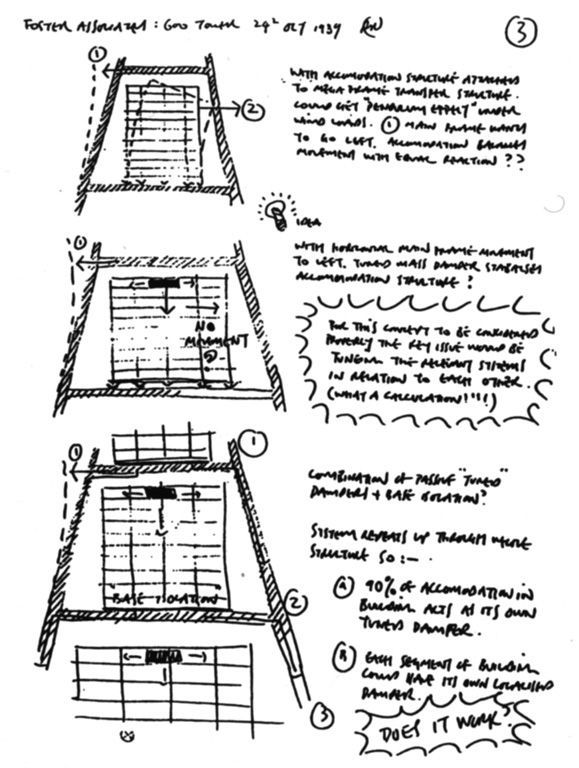 FOSTER ASSOCIATES: 600 TOWER 24th OCT 1989
3
1
2
WITH ACCOMODATION STRUCTURE ATTACHED
TO MEGA FRAME TRANSFER STRUCTURE.
COULD GET "PENDULUM EFFECT" UNDER
WIND LOADS. 1 MAIN FRAME WANTS
TO GO LEFT. ACCOMODATION BALANCES
MOVEMENT WITH EQUAL REACTION??
IDEA
1
NO
MOVEMENT
?
WITH HORIZONTAL MAIN FRAME MOVEMENT
TO LEFT. TUNED MASS DAMPER STABILISES
ACCOMODATION STRUCTURE?
FOR THIS CONCEPT TO BE CONSIDERED
PROPERLY THE KEY ISSUE WOULD BE
TUNING THE RELEVANT SYSTEMS
IN RELATION TO EACH OTHER.
(WHAT A CALCULATION!"!!)
1
1
BASE ISOLATION
2
3
COMBINATION OF PASSIVE "TUNED"
DAMPERS + BASE ISOLATION?
SYSTEM REPEATS UP THROUGH WHOLE
STRUCTURE SO:-
A 90% OF ACCOMODATION IN
BUILDING ACTS AS ITS OWN
TUNED DAMPER.
B EACH SEGMENT OF BUILDING
COULD HAVE ITS OWN LOCALISED
DAMPER.
DOES IT WORK?